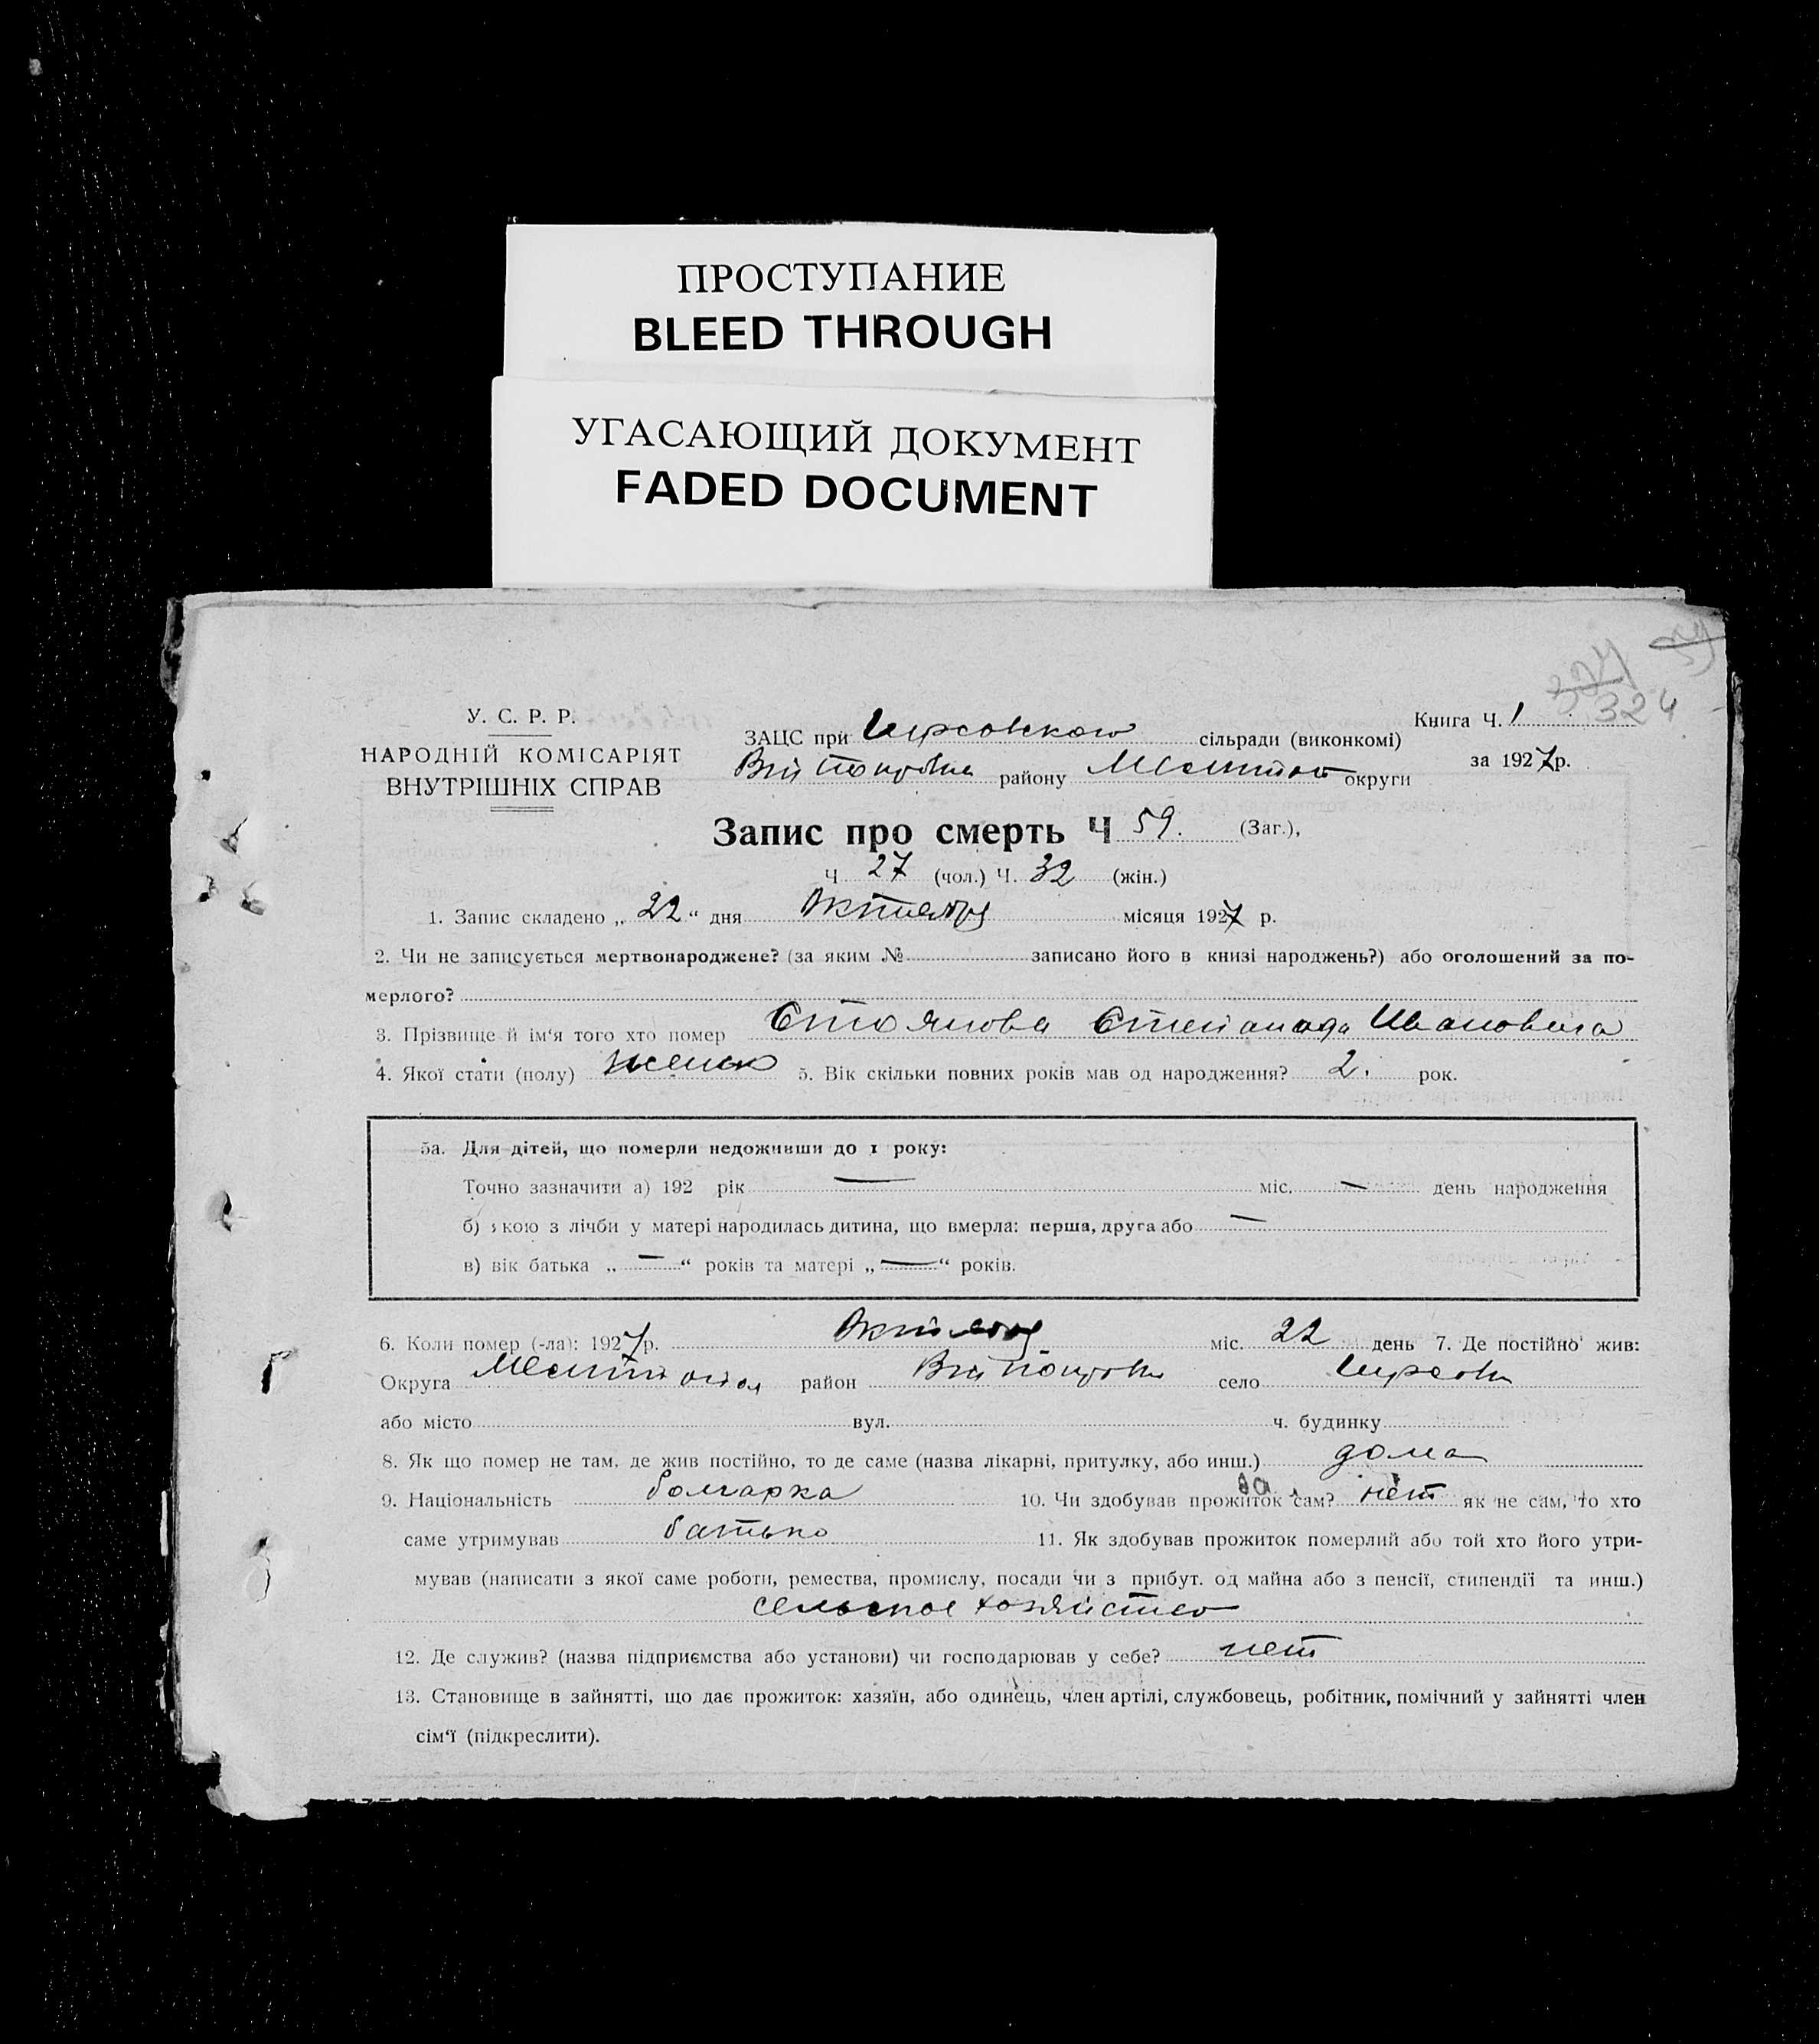 ПРОСТУПАНИЕ
BLEED THROUGH
УГАСАЮЩИЙ ДОКУМЕНТ
FADED DOCUMENT
324
У. С. Р. Р.
НАРОДНІЙ КОМІСАРІЯТ
ВНУТРІШНІХ СПРАВ
ЗАЦС при сільради (виконкомі)
району округи
Книга Ч. 1
за 1927 р.
Запис про смерть Ч 59. (Заг.),
Ч 27 (чол.) Ч. 32 (жін.)
1. Запис складено „ 22 “ дня Октября місяця 1927 р.
2. Чи не записується мертвонароджене? (за яким № записано його в книзі народжень?) або оголошений за по-
мерлого?
3. Прізвище й ім‘я того хто помер Стоянова Ивановна
4. Якої стати (полу) женск 5. Вік скільки повних років мав од народження? 2. рок.
5а. Для дітей, що померли недоживши до 1 року:
Точно зазначити а) 192 рік — міс. — день народження
б) якою з лічби у матері народилась дитина, що вмерла: перша, друга або —
в) вік батька „ — “ років та матері „ — “ років.
6. Коли помер (-ла): 1927 р. Октября міс. 22 день 7. Де постійно жив:
Округа район село
або місто вул. ч. будинку
8. Як що помер не там, де жив постійно, то де саме (назва лікарні, притулку, або инш.) дома
9. Національність болгарка 10. Чи здобував прожиток сам? нет як не сам, то хто
саме утримував батько 11. Як здобував прожиток померлий або той хто його утри-
мував (написати з якої саме роботи, ремества, промислу, посади чи з прибут. од майна або з пенсії, стипендії та инш.)
сельское хозяйство
12. Де служив? (назва підприємства або установи) чи господарював у себе? нет
13. Становище в зайнятті, що дає прожиток: хазяїн, або одинець, член артілі, службовець, робітник, помічний у зайнятті член
сім‘ї (підкреслити).